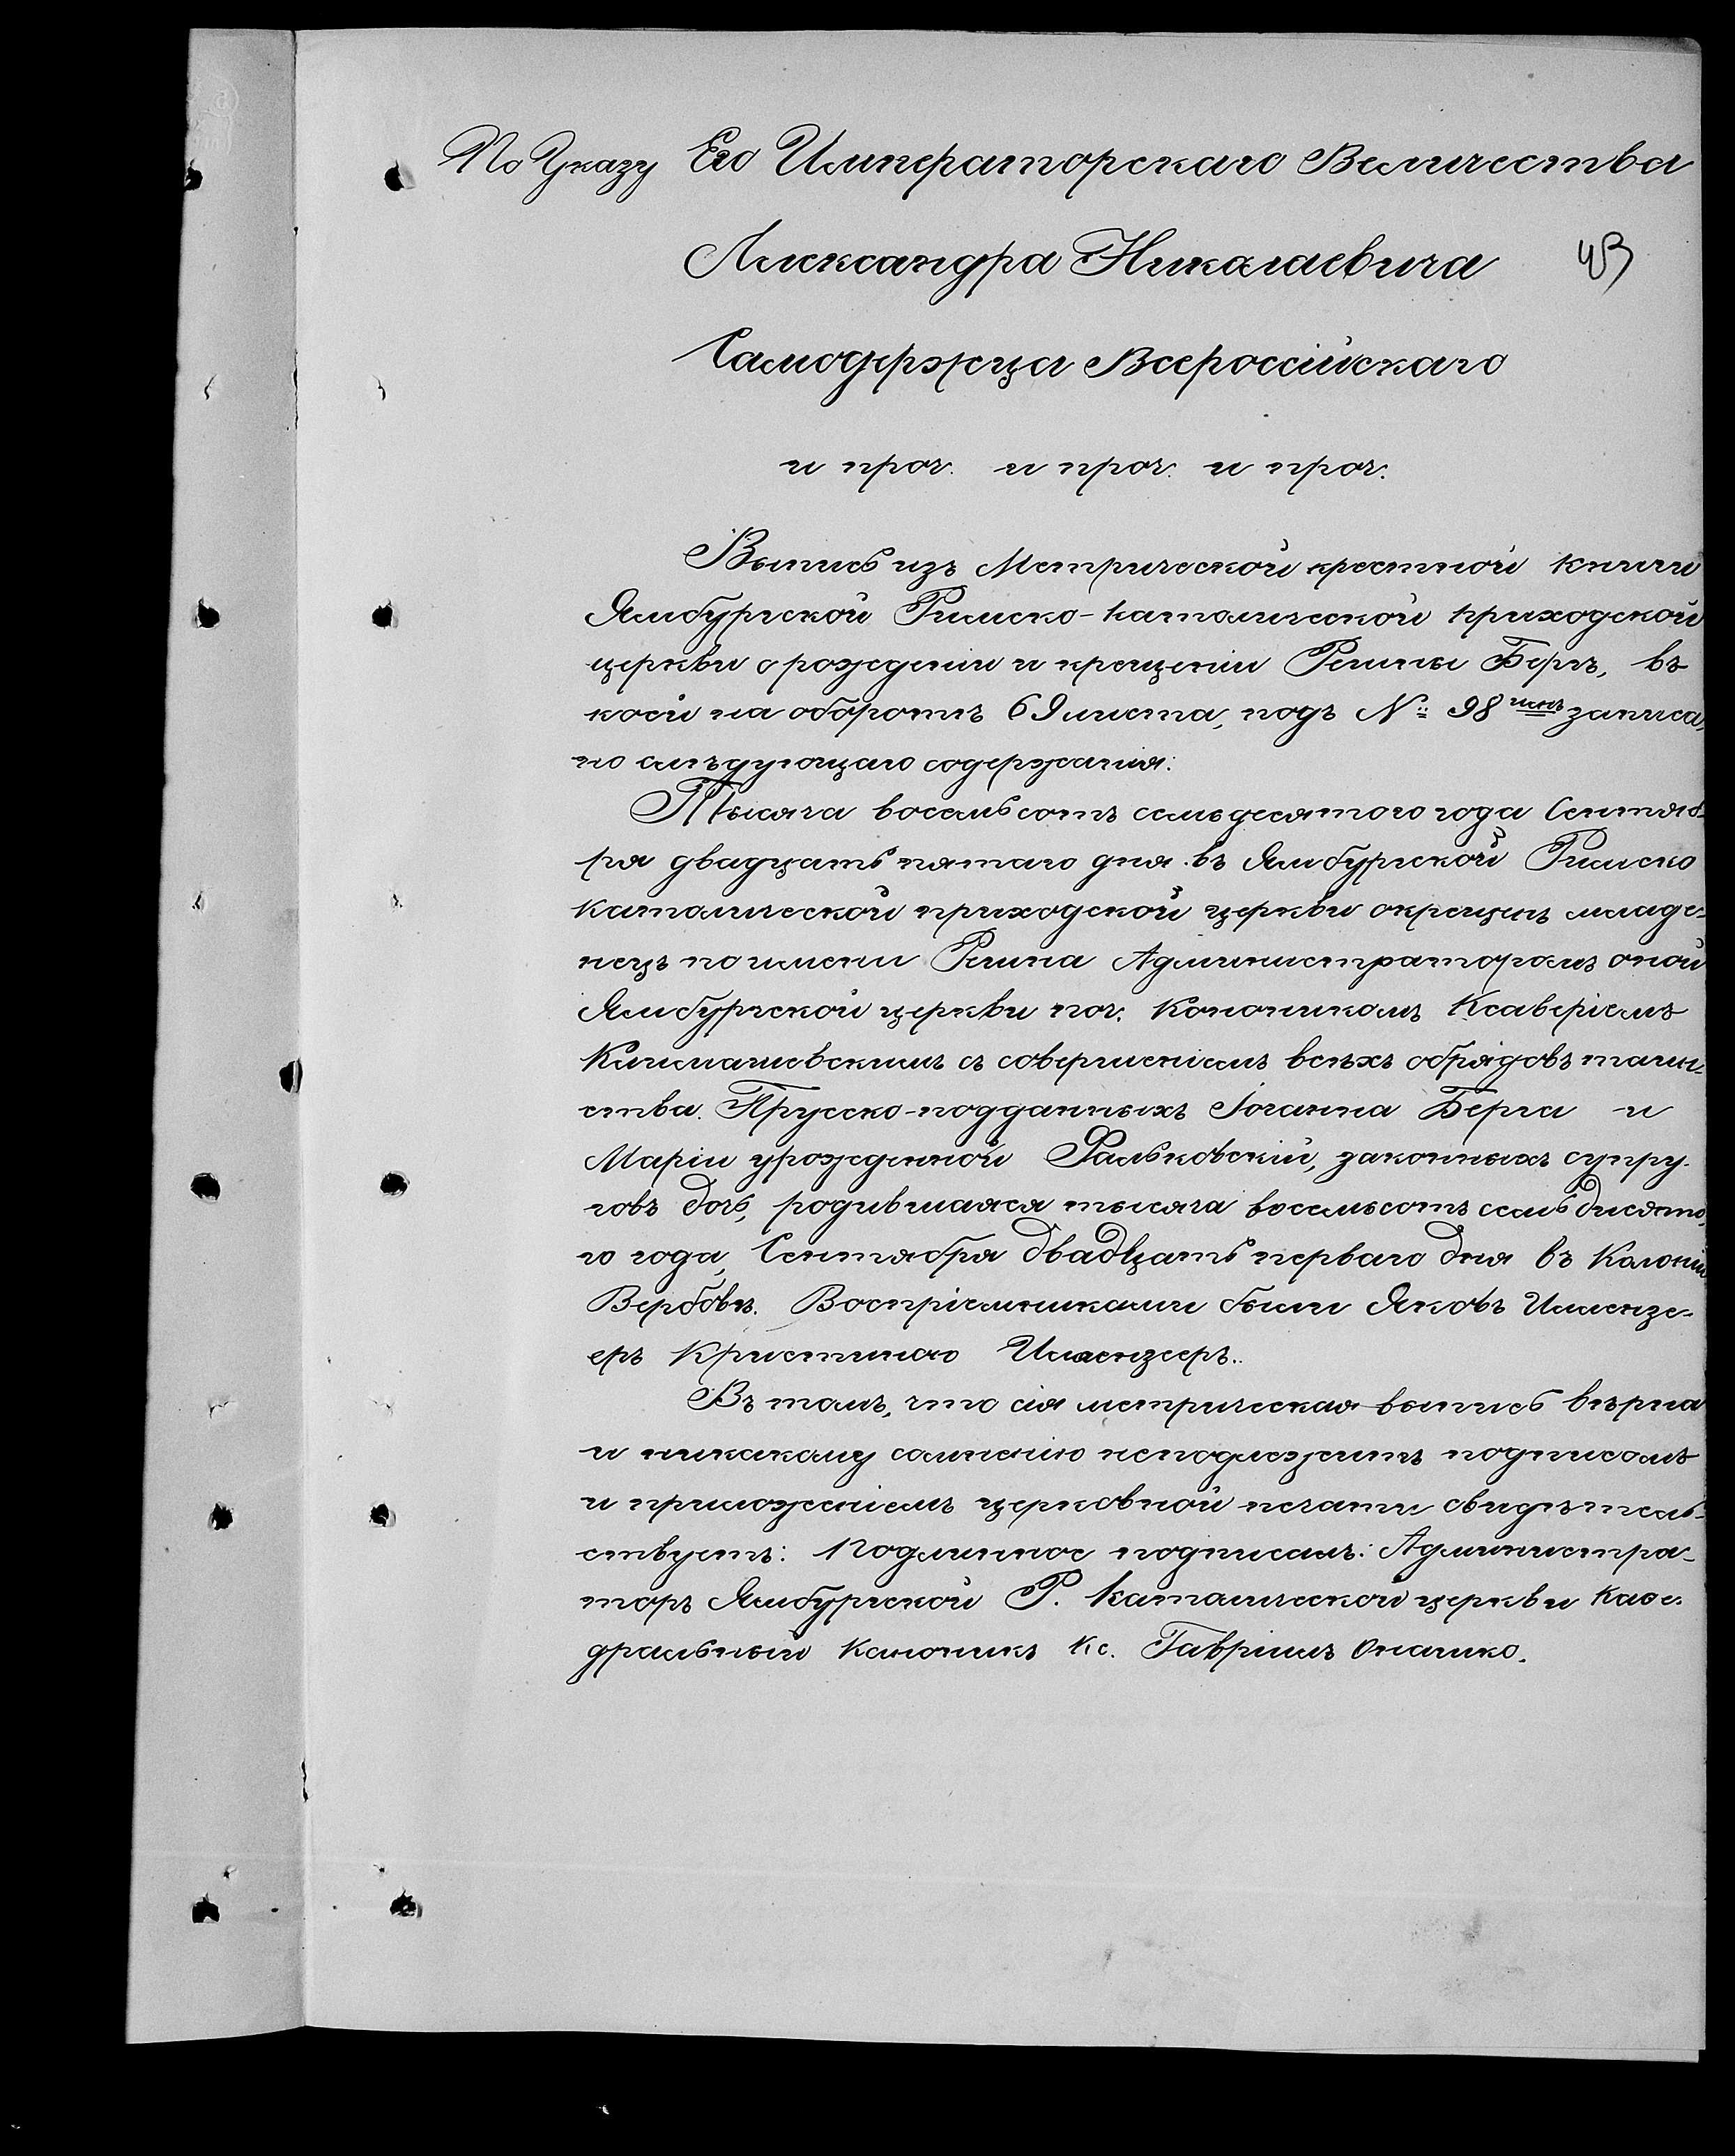 По Указу Его Императорскаго Величества
Александра Николаевича
Самодержца Всероссійскаго
и проч. и проч. и проч.
Выпись изъ Метрической крестной книги
Ямбургской Римско-католической приходской
церкви о рожденіи и крещеніи Регины Бергъ, въ
коей на оборотѣ 69 листа, подъ №: 98 записа,
но слѣдующаго содержанія:
Тысяча восемьсотъ семьдесятого года Сентяб-
ря двадцать пятаго дня въ Ямбургской Римско
католической приходской церкви окрещенъ младе-
нецъ по имени Регина Администраторомъ оной
Ямбургской церкви поч. Каноникомъ Ксаверіемъ
съ совершеніемъ всѣхъ обрядовъ таин-
ства. Прусско-подданныхъ Іоганна Берга и
Маріи урожденной Фальковскій, законныхъ супру-
говъ дочь, родившаяся тысяча восемьсотъ семьдесято,
го года, Сентября двадцать перваго дня въ Колоніи
Вербовѣ. Воспріемниками были Яковъ Имензе-
еръ Кристиною Имензееръ..
Въ томъ, что сія метрическая выпись вѣрна
и никакому сомненію неподлежитъ подписомъ
и приложеніемъ церковной печати свидѣтель-
ствуетъ: Подлинное подписалъ: Администра-
торъ Ямбургской Р. Католической церкви Каѳе-
дральный Каноникъ Кс. Гавріилъ